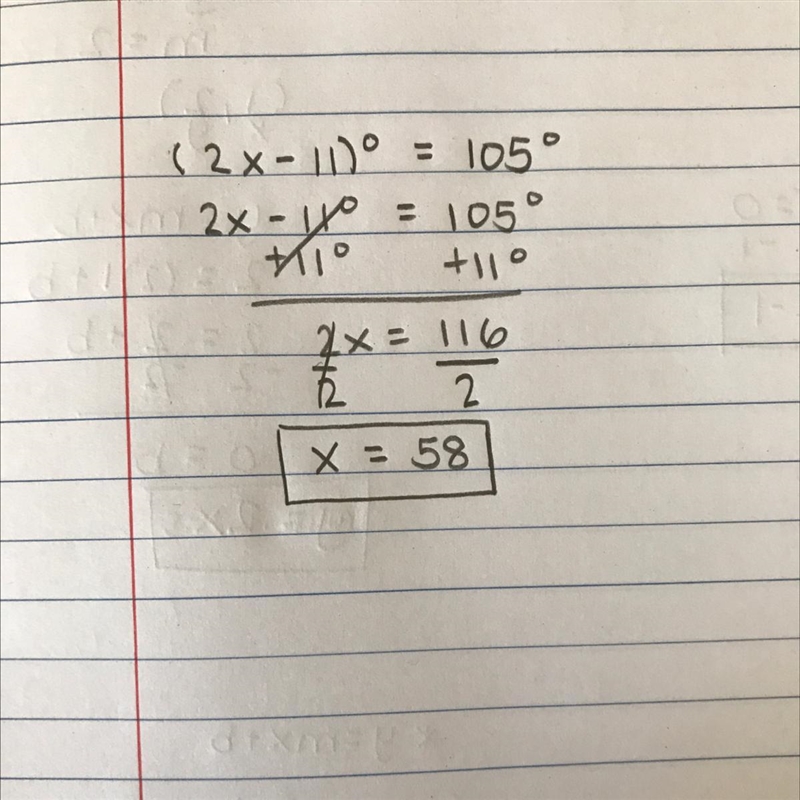 (2x - 11)° = 105°
2x - 11° = 105°
+11° +11°
2x = 116
2 2
x = 58